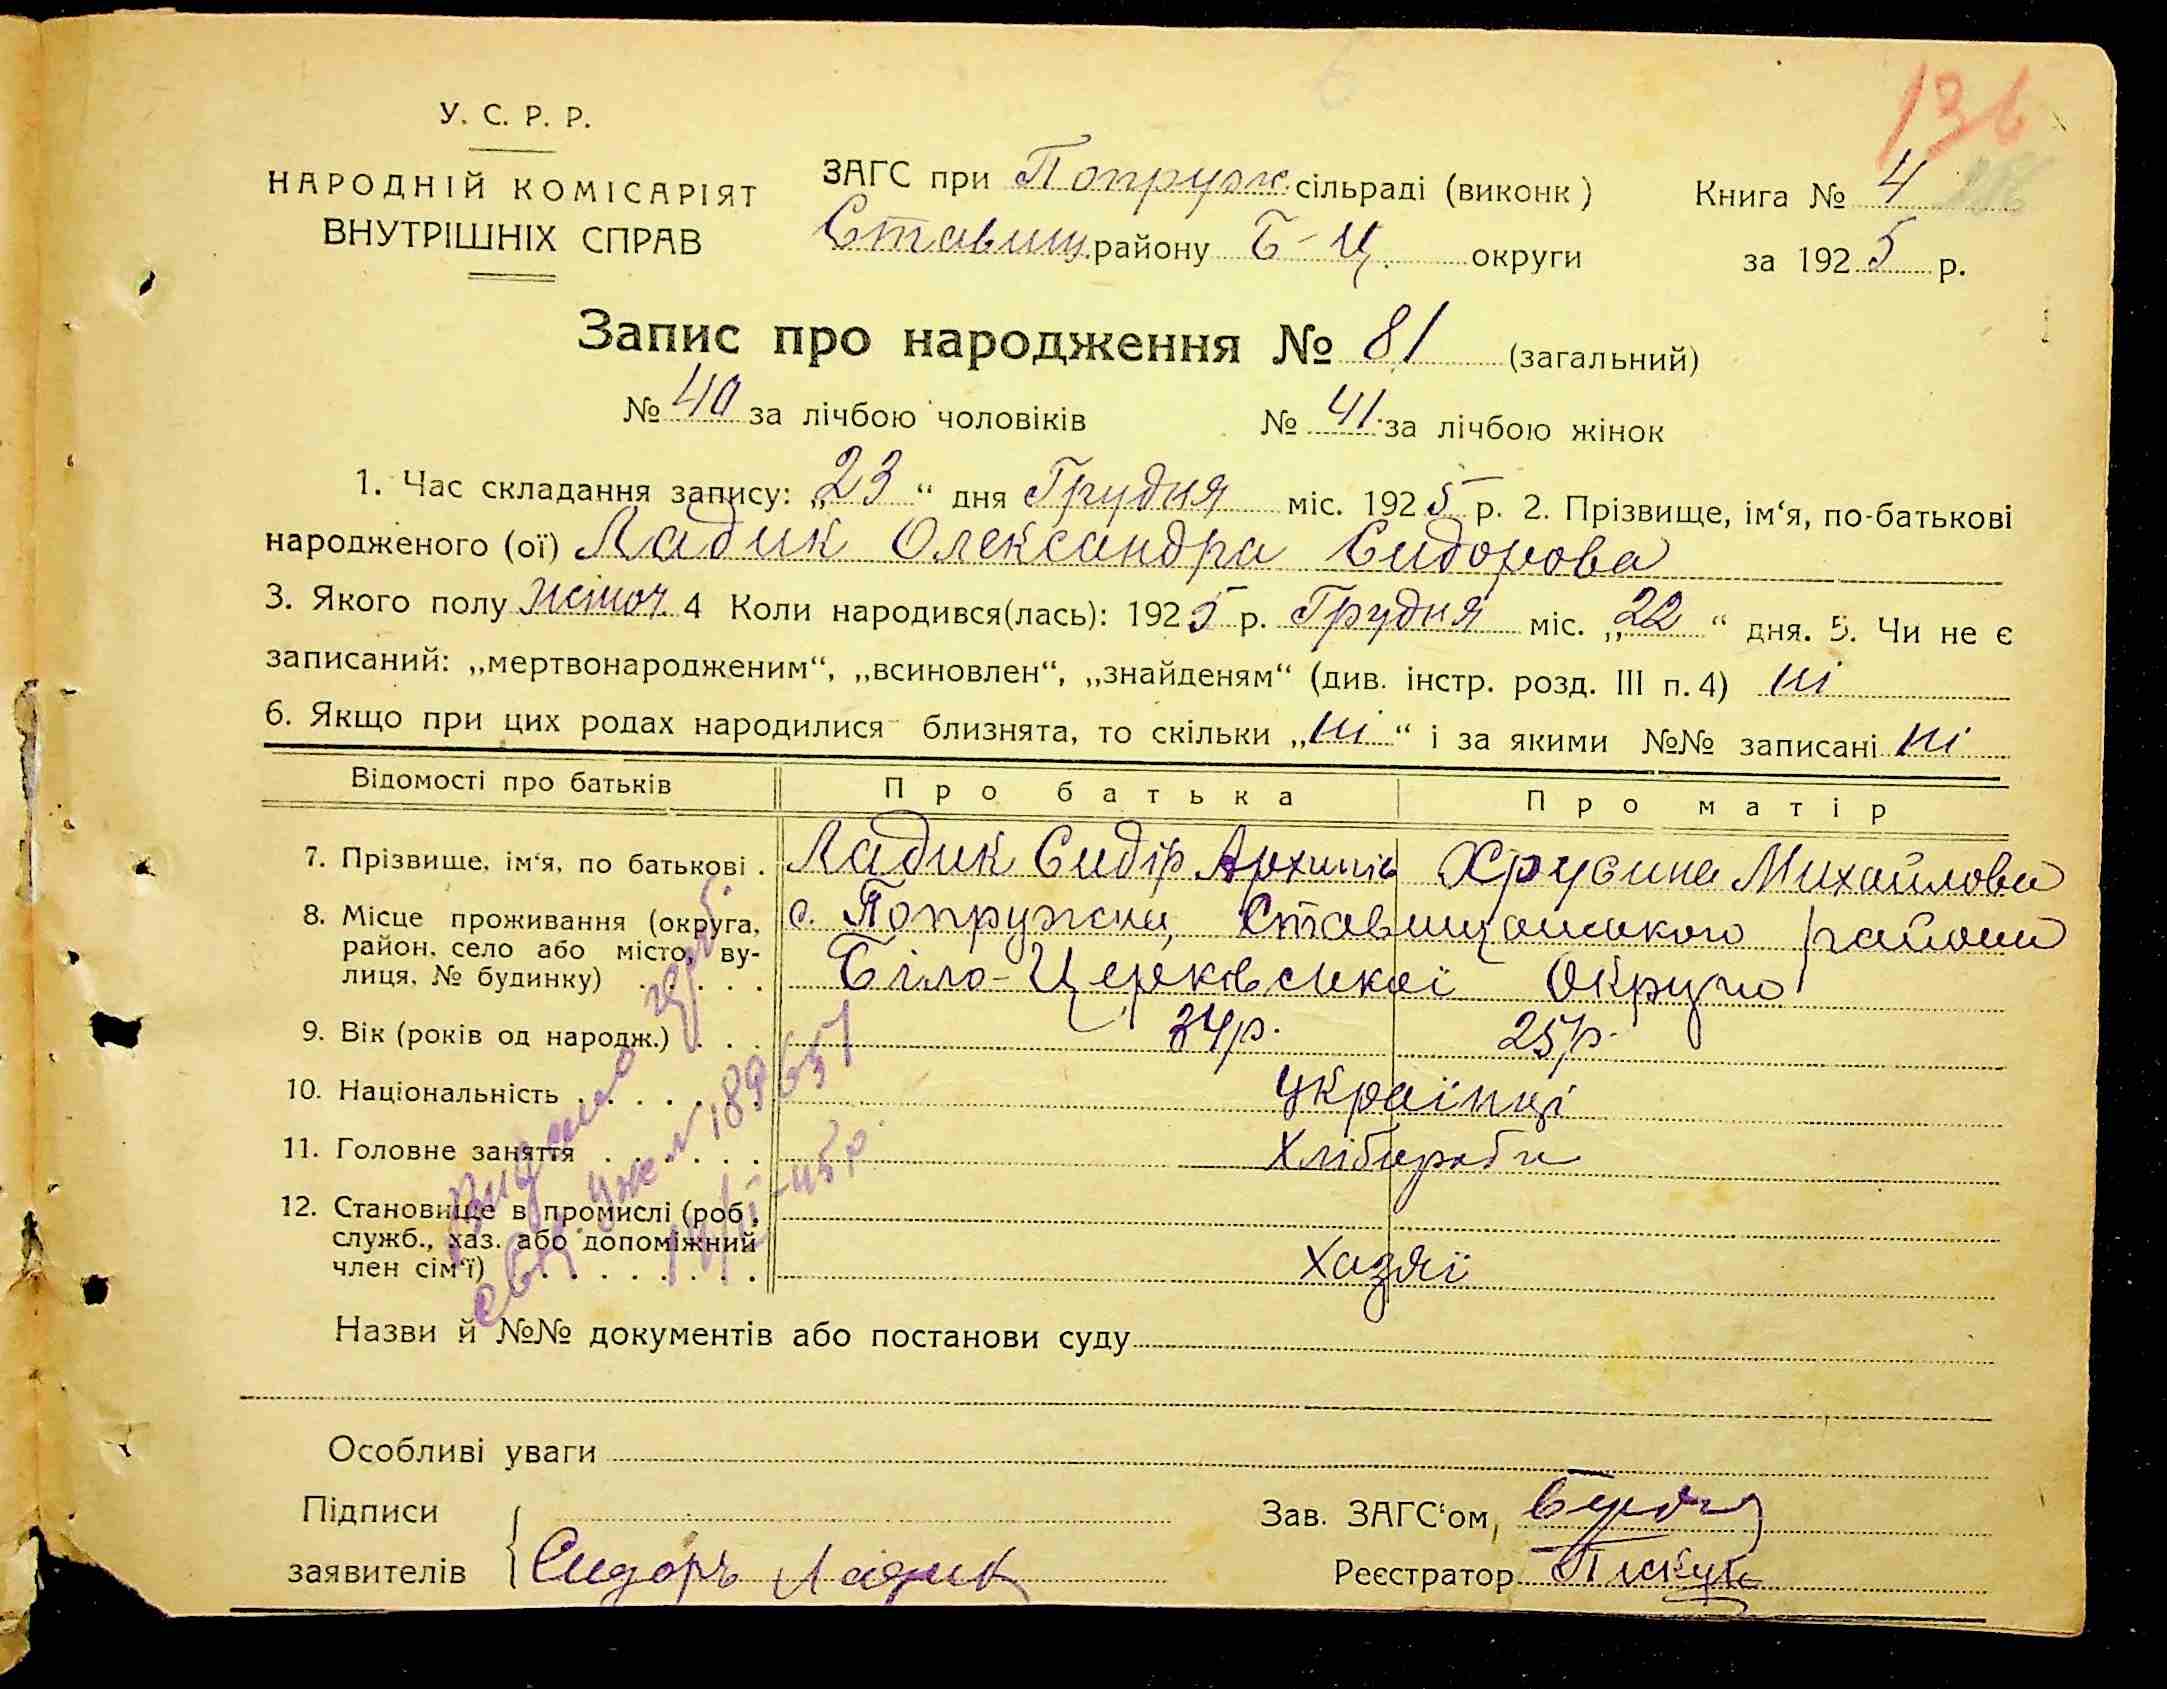 136
У. С. Р. Р.
НАРОДНІЙ КОМІСАРІЯТ
ВНУТРІШНІХ СПРАВ
ЗАГС при Попруж. сільраді (виконк)
Ставищ. району Б-Ц. округи
Книга № 4
за 1925 р.
Запис про народження № 81 (загальний)
№ 40 за лічбою чоловіків № 41 за лічбою жінок
1. Час складання запису: „23“ дня Грудня міс. 1925 р. 2. Прізвище, ім‘я, по-батькові
народженого (ої) Ладик Олександра Сидорова
3. Якого полу жіноч. 4 Коли народився(лась): 1925 р. Грудня міс. „22“ дня. 5. Чи не є
записаний: „мертвонародженим“, „всиновлен“, „знайденям“ (див. інстр. розд. III п. 4) ні
6. Якщо при цих родах народилися близнята, то скільки „ні“ і за якими №№ записані ні
Відомості про батьків Про батька Про матір
7. Прізвище, ім‘я, по батькові . Ладик Сидір Архипів Хрусина Михайлова
8. Місце проживання (округа, с. Попружна, Ставищанського района
район, село або місто, ву-
лиця, № будинку) . . . . . Біло-Церківської Округи
9. Вік (років од народж.) . . . 34 р. 25 р.
10. Національність . . . . . . . українці
11. Головне заняття . . . . . . Хлібороби
12. Становище в промислі (роб.,
служб., хаз. або допоміжний
член сім‘ї) . . . . . . . . хазяї
№ 189657
45 р.
Назви й №№ документів або постанови суду
Особливі уваги
Підписи
заявителів Сидоръ Ладик
Зав. ЗАГС‘ом,
Реєстратор Пискун